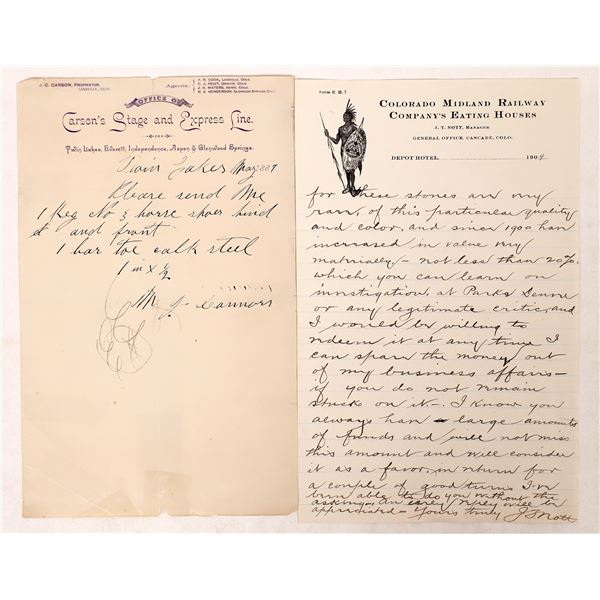 J. C. CARSON, PROPRIETOR,
Agents:
H. D. COOK, LEADVILLE, COLO.
J. H. WATERS, ASPEN, COLO.
HENDERSON, GLENWOOD SPRINGS, COLO.
OFFICE OF
Carson's Stage and Express Line.
FROM
Twin Lakes, Everett, Independence, Aspen & Glenwood Springs.
Twin Lakes May 1887
Please send Me
1 Keg No 3 horse shoes hind
and front
1 bar toe calk steel
1 in x 1/2
M J Connors
FORM E. H. 7
COLORADO MIDLAND RAILWAY
COMPANY'S EATING HOUSES
J. T. NOTT, MANAGER
GENERAL OFFICE, CASCADE, COLO.
DEPOT HOTEL, 1904
for these stones are very
rare, of this particular quality
and color, and since 1900 have
increased in value very
materially - not less than 20%.
which you can learn on
investigation, at Parks Denver
or any legitimate critic, and
I would be willing to
redeem it at any time I
can spare the money out
of my business affairs -
if you do not remain
stuck on it. - I know you
always have large amounts
of funds and will not miss
this amount and will consider
it as a favor, in return for
a couple of good turns I've
been able to do you without the
asking - an early reply will be
appreciated - Yours truly J T Nott